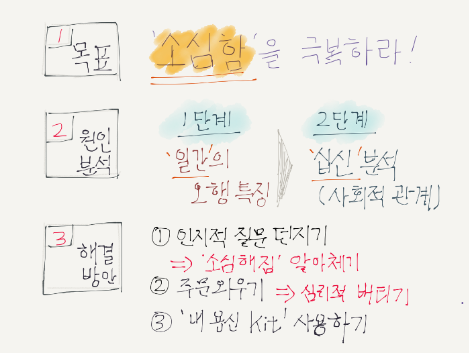 1 목표
'소심함'을 극복하라!
2 원인
분석
1단계
'일간'의
오행 특징
2단계
'십신' 분석
(사회적 관계)
3 해결
방안
① 인지적 질문 던지기
⇒ '소심해짐' 알아채기
② 주문외우기 ⇒ 심리적 버티기
③ '내 용신 Kit' 사용하기